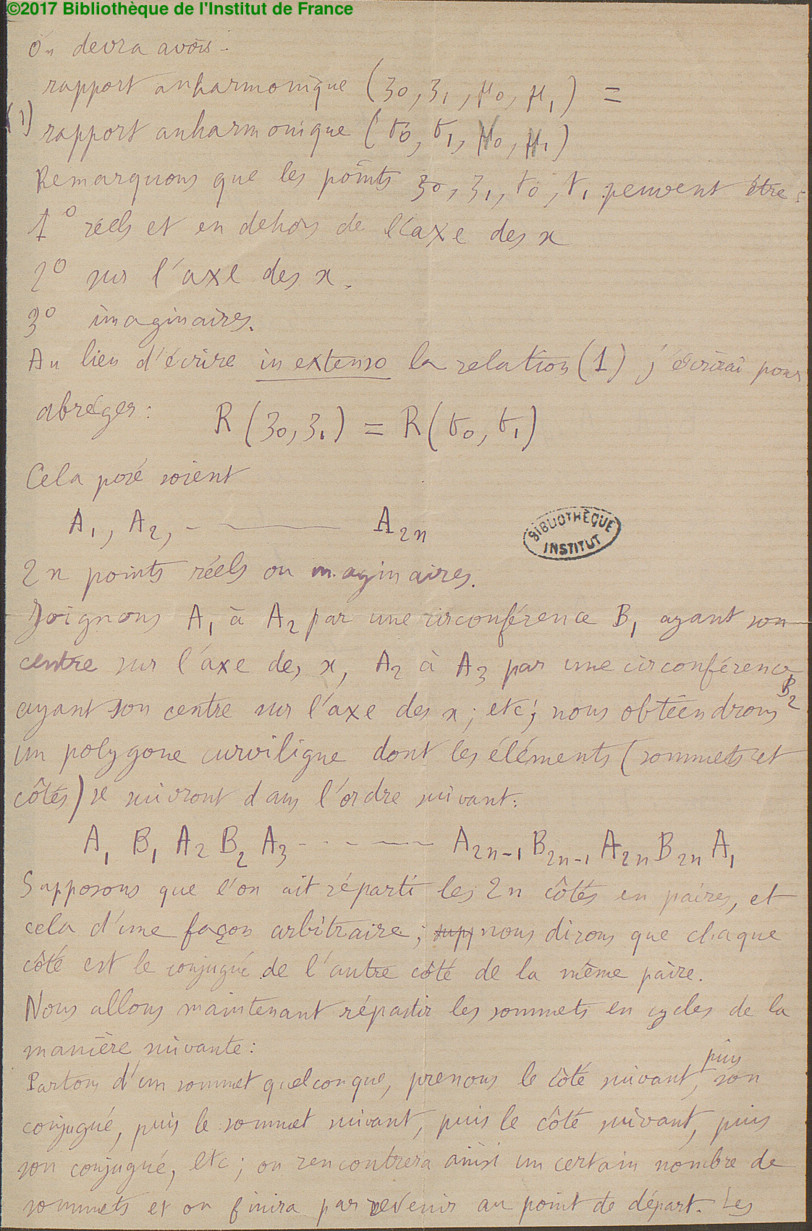 ©2017 Bibliothèque de l'Institut de France
On devra avoir.
rapport anharmonique (z0, z1, μ0, μ1) =
(1) rapport anharmonique (t0, t1, μ0, μ1)
Remarquons que les points z0, z1, t0, t1 peuvent être :
1° réels et en dehors de l'axe des x
2° sur l'axe des x.
3° imaginaires.
Au lieu d'écrire in extenso la relation (1) j'écrirai pour
abréger : R (z0, z1) = R (t0, t1)
Cela posé soient
A1, A2, - ——— A2n
BIBLIOTHÈQUE
INSTITUT
2n points réels ou imaginaires.
Joignons A1 à A2 par une circonférence B1 ayant son
centre sur l'axe des x, A2 à A3 par une circonférence B2
ayant son centre sur l'axe des x; etc; nous obtiendrons
un polygone curviligne dont les éléments (sommets et
côtés) se suivront dans l'ordre suivant:
A1 B1 A2 B2 A3 - - - —— - A2n-1 B2n-1 A2n B2n A1
Supposons que l'on ait réparti les 2n côtés en paires, et
cela d'une façon arbitraire; supp nous dirons que chaque
côté est le conjugué de l'autre côté de la même paire.
Nous allons maintenant répartir les sommets en cycles de la
manière suivante:
Partons d'un sommet quelconque, prenons le côté suivant, puis son
conjugué, puis le sommet suivant, puis le côté suivant, puis
son conjugué, etc; on rencontrera ainsi un certain nombre de
sommets et on finira par revenir au point de départ. Les